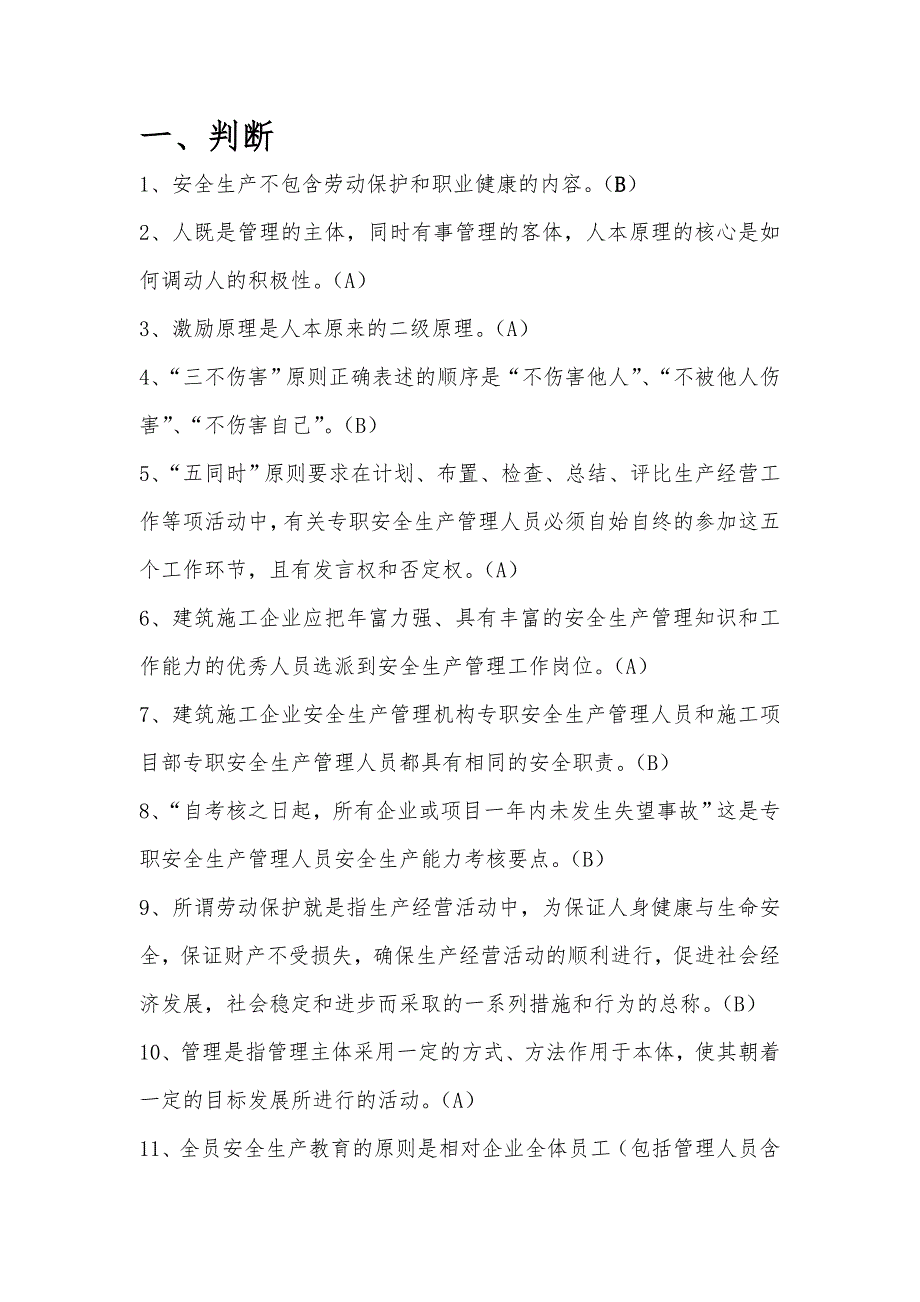 一、判断
1、安全生产不包含劳动保护和职业健康的内容。（B）
2、人既是管理的主体，同时有事管理的客体，人本原理的核心是如
何调动人的积极性。（A）
3、激励原理是人本原来的二级原理。（A）
4、“三不伤害”原则正确表述的顺序是“不伤害他人”、“不被他人伤
害”、“不伤害自己”。（B）
5、“五同时”原则要求在计划、布置、检查、总结、评比生产经营工
作等项活动中，有关专职安全生产管理人员必须自始自终的参加这五
个工作环节，且有发言权和否定权。（A）
6、建筑施工企业应把年富力强、具有丰富的安全生产管理知识和工
作能力的优秀人员选派到安全生产管理工作岗位。（A）
7、建筑施工企业安全生产管理机构专职安全生产管理人员和施工项
目部专职安全生产管理人员都具有相同的安全职责。（B）
8、“自考核之日起，所有企业或项目一年内未发生失望事故”这是专
职安全生产管理人员安全生产能力考核要点。（B）
9、所谓劳动保护就是指生产经营活动中，为保证人身健康与生命安
全，保证财产不受损失，确保生产经营活动的顺利进行，促进社会经
济发展，社会稳定和进步而采取的一系列措施和行为的总称。（B）
10、管理是指管理主体采用一定的方式、方法作用于本体，使其朝着
一定的目标发展所进行的活动。（A）
11、全员安全生产教育的原则是相对企业全体员工（包括管理人员含